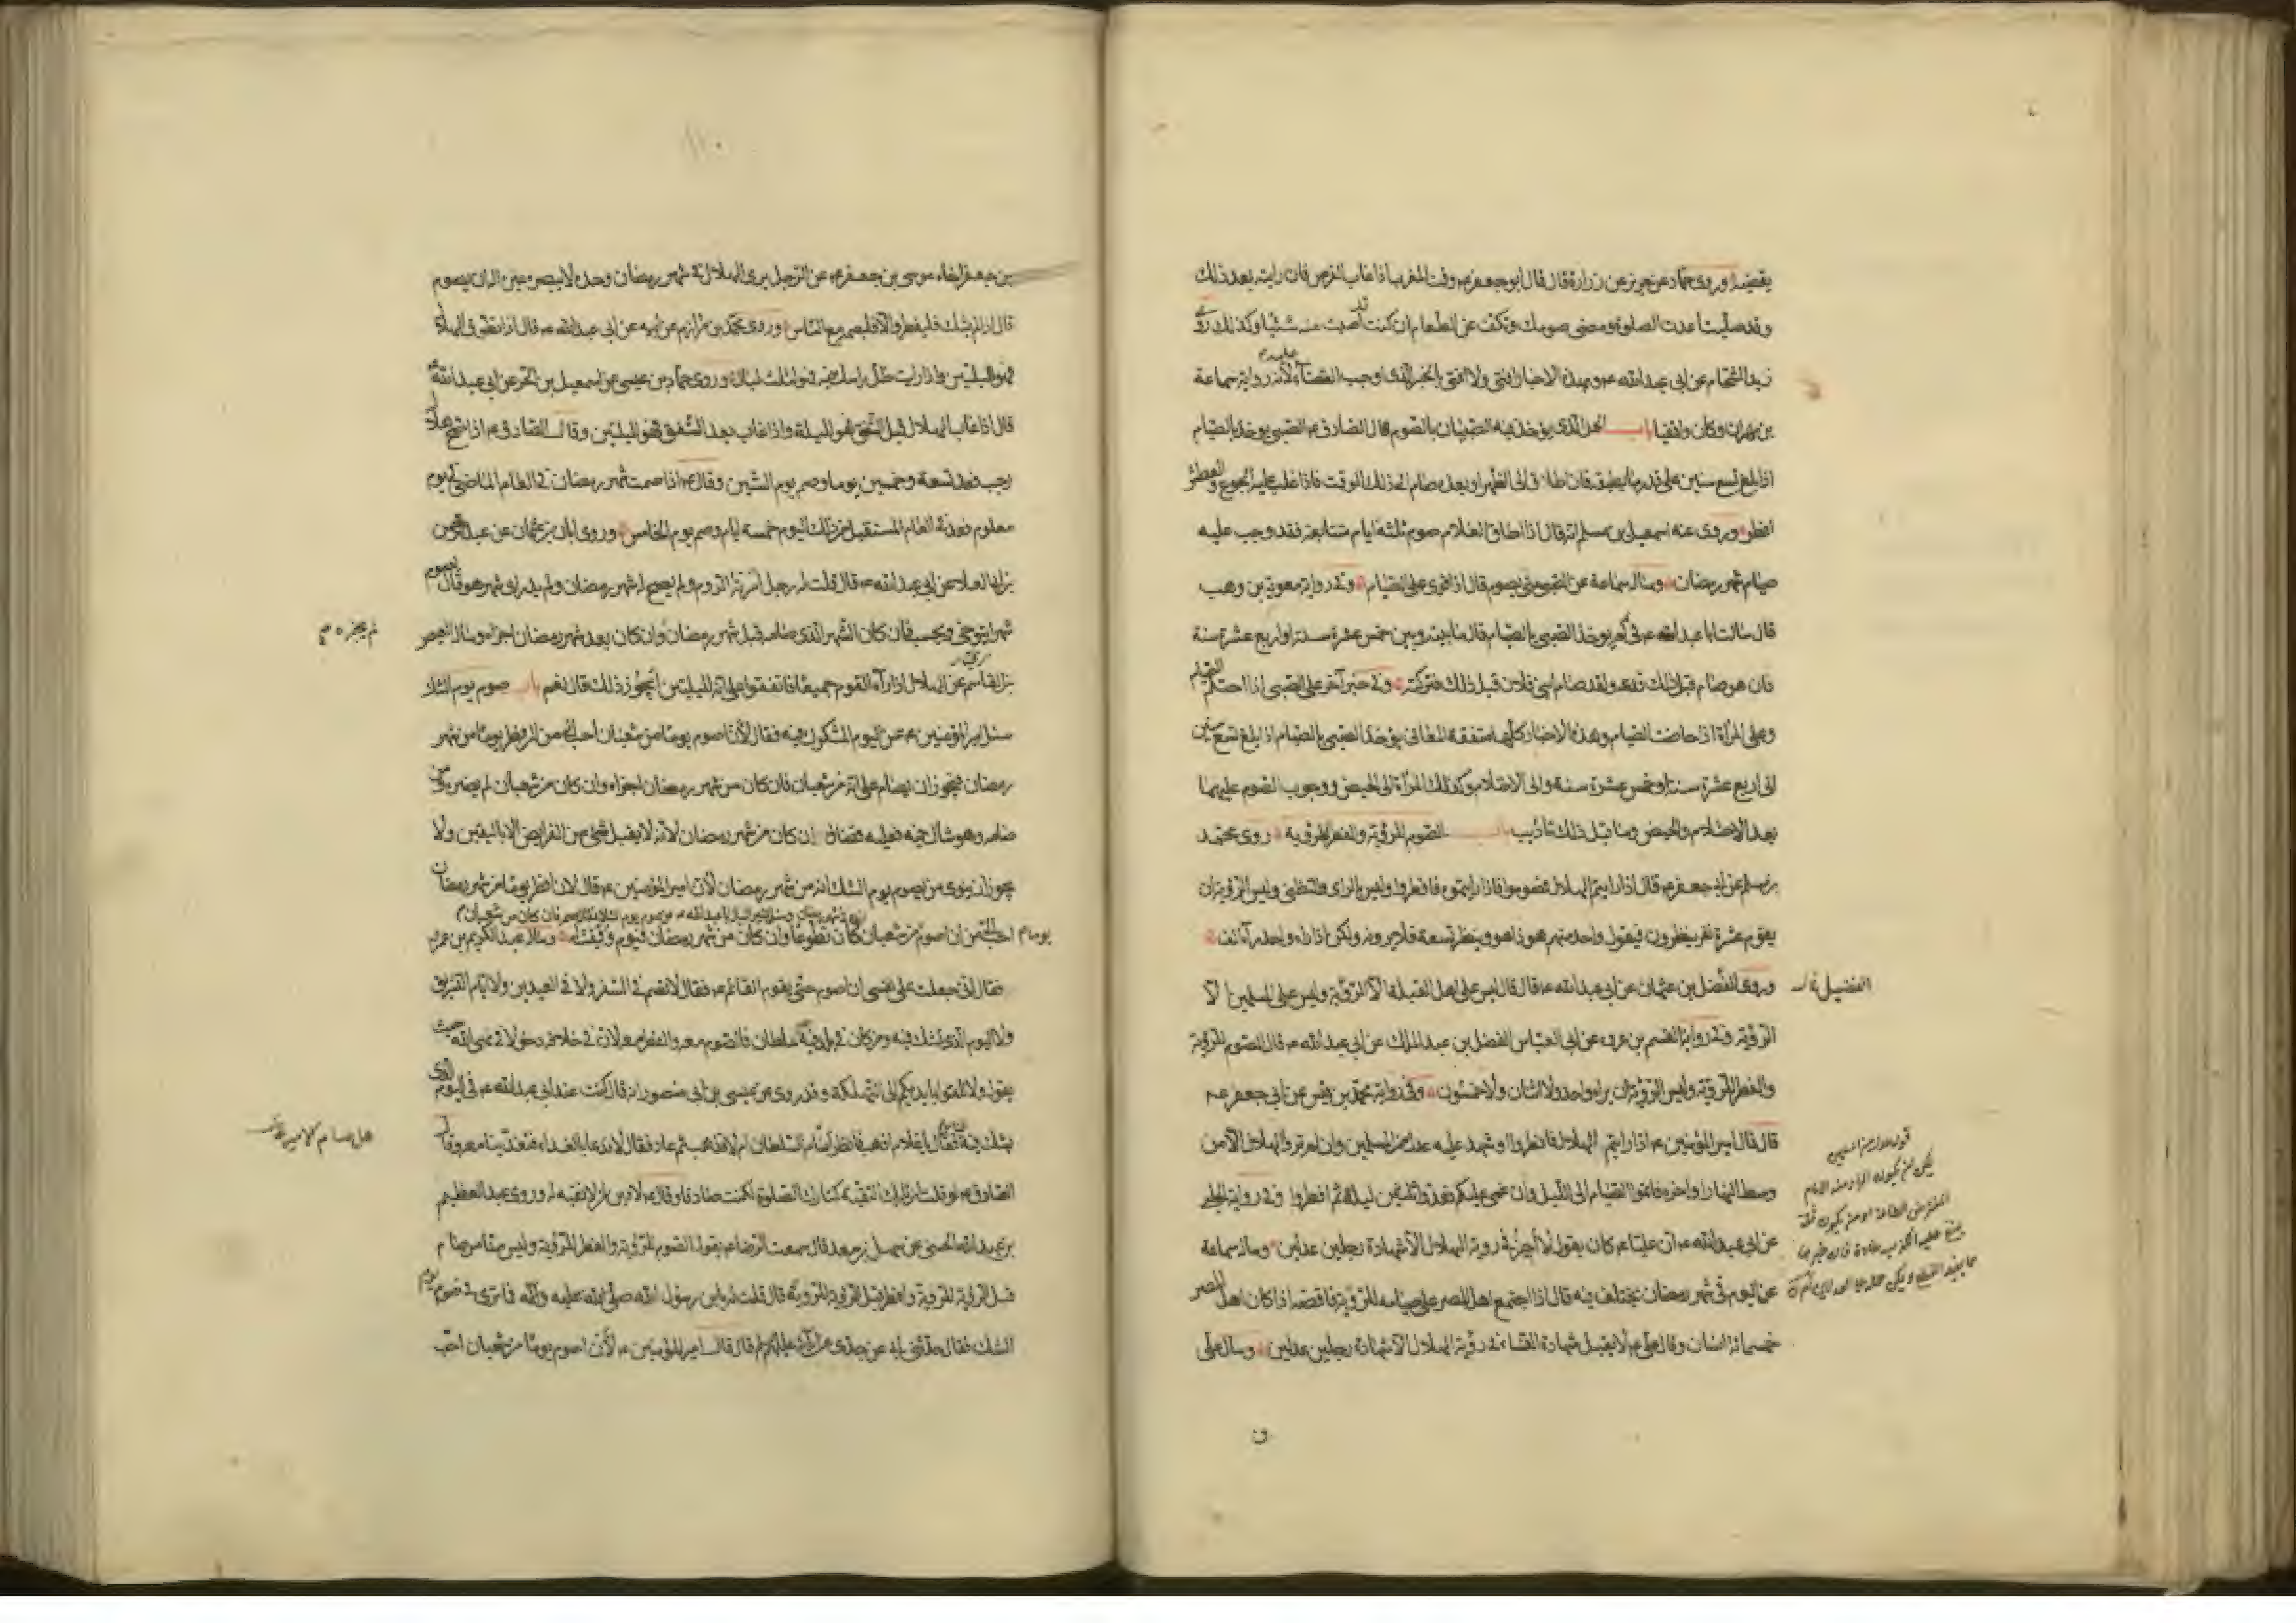 يقضيه وروى حماد عن حريز عن زرارة قال قال ابو جعفر ع وقت المغرب اذا غاب القرص فان رايته بعد ذلك
وقد صليت اعدت الصلوة ومضى صومك وتكف عن الطعام ان كنت قد اصبت منه شيئا وكذلك روى
زيد الشحام عن ابي عبد الله ع وبهذه الاخبار افتى ولا افتى بالخبر الذى اوجب عليه القضاء لانه رواية سماعة
بن مهران وكان واقفيا باب الحد الذى يؤخذ فيه الصبيان بالصوم قال الصادق ع الصبى يؤخذ بالصيام
اذا بلغ تسع سنين على قدر ما يطيقه فان اطاق الى الظهر او بعده صام الى ذلك الوقت فاذا غلب عليه الجوع والعطش
افطر وروى عنه اسمعيل بن مسلم انه قال اذا اطاق الغلام صوم ثلثة ايام متتابعة فقد وجب عليه
صيام شهر رمضان وساله سماعة عن الصبى متى يصوم قال اذا قوى على الصيام وفى رواية معوية بن وهب
قال سالت ابا عبد الله ع فى كم يؤخذ الصبى بالصيام قال ما بينه وبين خمس عشرة سنة او اربع عشرة سنة
فان هو صام قبل ذلك فدعه ولقد صام ابنى فلان قبل ذلك فتركته وفى خبر آخر على الصبى اذا احتلم الصيام
وعلى المرأة اذا حاضت الصيام وهذه الاخبار كلها متفقة المعانى يؤخذ الصبى بالصيام اذا بلغ تسع سنين
الى اربع عشرة سنة او خمس عشرة سنة والى الاحتلام وكذلك المرأة الى الحيض ووجوب الصوم عليهما
بعد الاحتلام والحيض وما قبل ذلك تأديب باب الصوم للرؤية والفطر للرؤية روى محمد
بن مسلم عن ابى جعفر ع قال اذا رايتم الهلال فصوموا فاذا رايتموه فافطروا وليس بالراى والتظنى وليس الرؤية ان
يقوم عشرة نفر ينظرون فيقول واحد منهم هو ذا هو وينظر تسعة فلا يرونه ولكن اذا راه واحد رآه الف
وروى الفضل بن عثمان عن ابى عبد الله ع قال قال ليس على اهل القبلة الا الرؤية وليس على المسلمين الا
الفضيل
الرؤية وفى رواية القسم بن عروه عن ابى العباس الفضل بن عبد الملك عن ابى عبد الله ع قال الصوم للرؤية
والفطر للرؤية وليس الرؤية ان يراه واحد ولا اثنان ولا خمسون وفى رواية محمد بن قيس عن ابى جعفر ع
قال قال امير المؤمنين ع اذا رايتم الهلال فافطروا او شهد عليه عدل من المسلمين وان لم تروا الهلال الا من
وسط النهار او اخره فاتموا الصيام الى الليل وان غمى عليكم فعدوا ثلثين ليلة ثم افطروا وفى رواية الحلبى
عن ابى عبد الله ع ان عليا ع كان يقول لا اجيز فى رؤية الهلال الا شهادة رجلين عدلين وساله سماعة
عن اليوم فى شهر رمضان يختلف فيه قال اذا اجتمع اهل المصر على صيامه للرؤية فاقضه اذا كان اهل المصر
خمسمائة انسان وقال على ع لا يقبل شهادة النساء فى رؤية الهلال الا شهادة رجلين عدلين وسال على
بن جعفر اخاه موسى بن جعفر ع عن الرجل يرى الهلال فى شهر رمضان وحده لا يبصره غيره اله ان يصوم
قال اذا لم يشك فليفطر والا فليصم مع الناس وروى محمد بن مرازم عن ابيه عن ابى عبد الله ع قال اذا تطوق الهلال
فهو لليلتين واذا رايت ظل راسك فيه فهو لثلث ليال وروى حماد بن عيسى عن اسمعيل بن الحر عن ابى عبد الله ع
قال اذا غاب الهلال قبل الشفق فهو لليلة واذا غاب بعد الشفق فهو لليلتين وقال الصادق ع اذا صح هلال
رجب فعد تسعة وخمسين يوما وصم يوم الستين وقال ع اذا صمت شهر رمضان فى العام الماضى فى يوم
معلوم فعد فى العام المستقبل من ذلك اليوم خمسة ايام وصم يوم الخامس وروى ابان بن عثمان عن عبد الرحمن
بن ابى العلاء عن ابى عبد الله ع قال قلت له رجل اسرته الروم ولم يصح له شهر رمضان ولم يدر اى شهر هو قال يصوم
شهرا يتوخى ويحسب فان كان الشهر الذى صامه قبل شهر رمضان وان كان بعد شهر رمضان اجزاه وساله العيص
لم يجزه
بن القاسم عن الهلال اذا رآه القوم جميعا فاتفقوا على انه لليلتين ايجوز ذلك قال نعم باب صوم يوم الشك
سئل امير المؤمنين ع عن اليوم المشكوك فيه فقال لان اصوم يوما من شعبان احب الى من ان افطر يوما من شهر
رمضان فيجوز ان يصام على انه من شعبان فان كان من شهر رمضان اجزاه وان كان من شعبان لم يضره ومن
صامه وهو شاك فيه فعليه قضاؤه ان كان من شهر رمضان لانه لا يقبل شئ من الفرايض الا باليقين ولا
يجوز ان ينوى من يصوم يوم الشك انه من شهر رمضان لان امير المؤمنين ع قال لان افطر يوما من شهر رمضان
احب الى من ان اصوم من شعبان كان تطوعا وان كان من شهر رمضان فيوم وفقت له وساله عبد الكريم بن عمرو
فقال انى جعلت على نفسى ان اصوم حتى يقوم القائم ع فقال لا تصم فى السفر ولا فى العيدين ولا ايام التشريق
ولا اليوم الذى يشك فيه ومن كان فى بلد فيه سلطان فالصوم معه والفطر معه لان فى خلافه دخولا فى نهى الله حيث
يقول ولا تلقوا بايديكم الى التهلكة وقد روى عن عيسى بن ابى منصور انه قال كنت عند ابى عبد الله ع فى اليوم الذى
يشك فيه فقال يا غلام اذهب فانظر أصام السلطان ام لا فذهب ثم عاد فقال لا فدعا بالغداء فتغدينا معه وقال
هل صام الامير
الصادق ع لو قلت ان تارك التقية كتارك الصلوة لكنت صادقا وقال ع لا دين لمن لا تقية له وروى عبد العظيم
بن عبد الله الحسنى عن سهل بن سعد قال سمعت الرضا ع يقول الصوم للرؤية والفطر للرؤية وليس منا من صام
قبل الرؤية للرؤية وافطر قبل الرؤية للرؤية قال قلت له يا بن رسول الله صلى الله عليه وآله فما ترى فى صوم يوم
الشك فقال حدثنى ابى عن جدى عن آبائه عليهم السلم قال قال امير المؤمنين ع لان اصوم يوما من شعبان احب